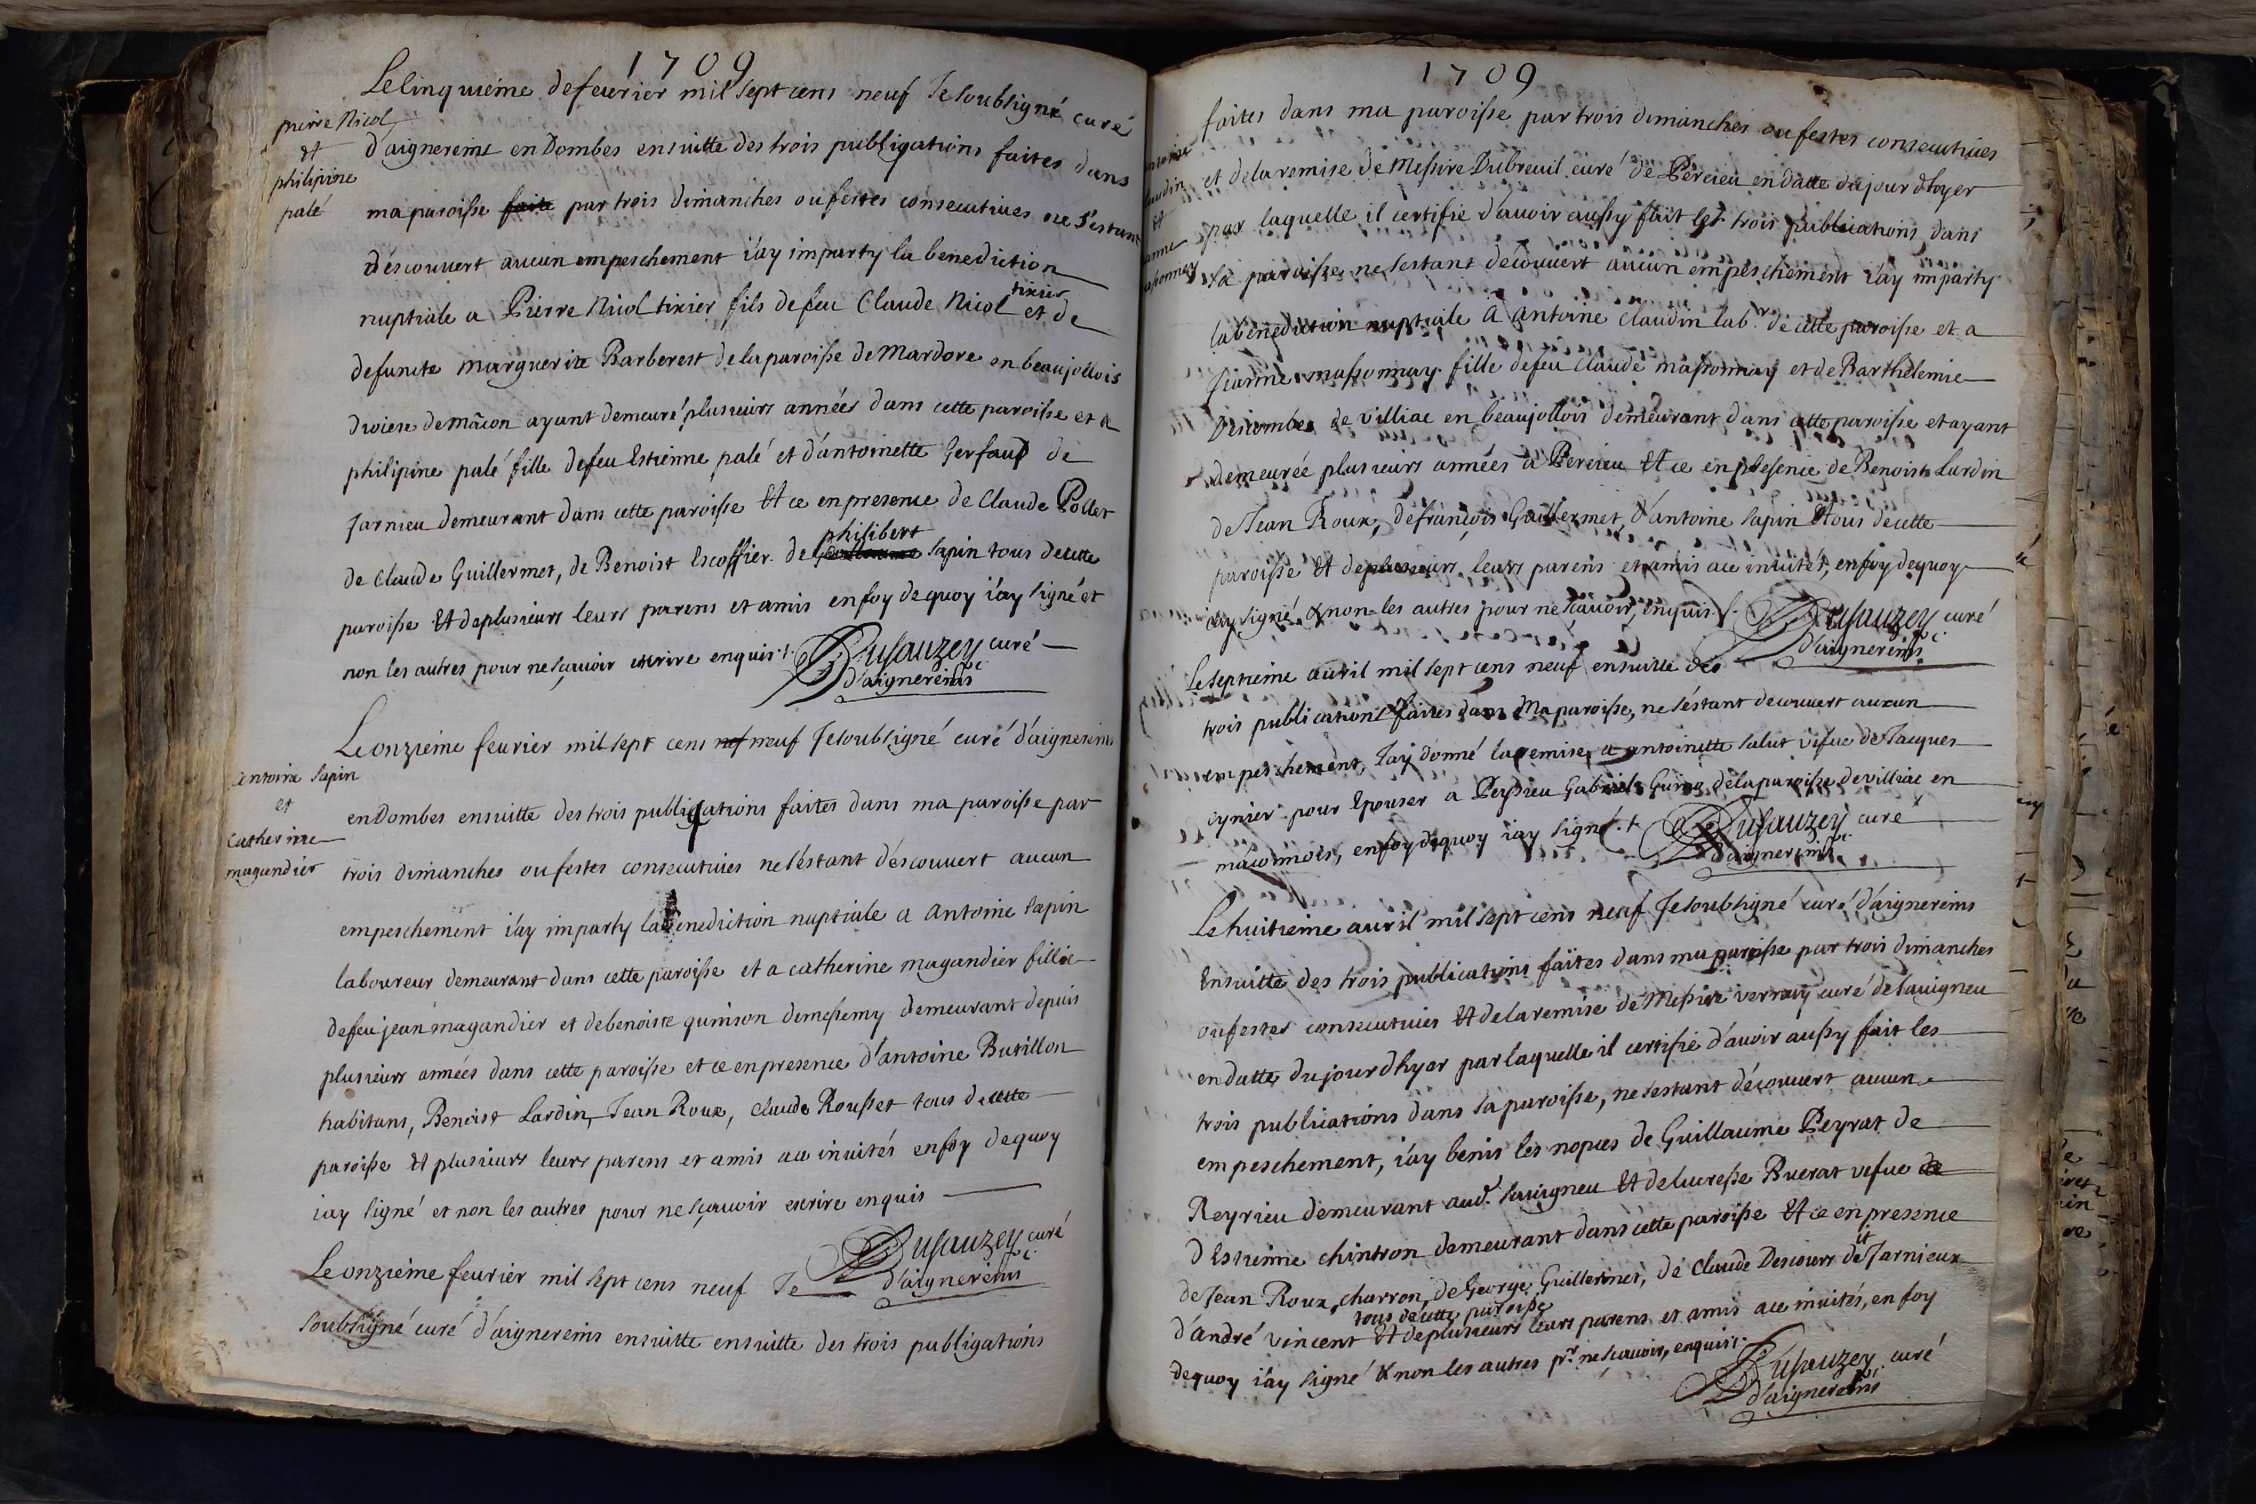 1709
Le cinquiéme de feuvrier mil sept cens neuf Je soubsigné curé
pierre Nicol
et
philipine
palé
d'aignereins en Dombes ensuitte des trois publigations faites dans
ma paroisse faite par trois dimanches ou festes consecutiues ne s'estant
découvert aucun empeschement i'ay imparty la benediction
nuptiale a Pierre Nicol tixier fils de feu Claude Nicol tixier et de
defuncte Marguerite Barberest de la paroisse de Mardore en beaujollois
diocese de mâcon ayant demeuré plusieurs années dans cette paroisse et a
philipine palé fille de feu Estienne palé et d'antoinette Gerfaud de
Jarnieu demeurant dans cette paroisse Et ce en presence de Claude Pollet
de Claude Guillermet, de Benoist Escoffier. de philibert sapin tous de cette
paroisse Et de plusieurs leurs parens et amis en foy de quoy i'ay signé et
non les autres pour ne sçauoir escrire enquis
Dusauzey curé
d'aignereins
Le onziéme feurier mil sept cens nef neuf Je soubsigné curé d'aignereins
antoine sapin
et
Catherine
magandier
en Dombes ensuitte des trois publigations faites dans ma paroisse par
trois dimanches ou festes consecutiues ne s'éstant découuert aucun
empeschement i'ay imparty la benediction nuptiale a antoine sapin
laboureur demeurant dans cette paroisse et a catherine magandier fille
de feu jean magandier et de benoiste quinson de messemy demeurant depuis
plusieurs années dans cette paroisse et ce en presence d'antoine Butillon
habitans, Benoist Lardin, Jean Roux, claude Rousset tous de cette
paroisse Et plusieurs leurs parens et amis a ce inuités en foy de quoy
i'ay signé et non les autres pour ne sçauoir escrire enquis
Dusauzey curé
d'aignereins
Le onziéme feurier mil sept cens neuf Je
soubsigné curé d'aignereins ensuitte ensuitte des trois publigations
1709
faites dans ma paroisse par trois dimanches ou festes consecutiues
et
et de la remise de Messire Dubreuil curé de Percieu en datte du jour d'hyer
par laquelle il certifie d'auoir aussy fait les trois publications dans
sa paroisse ne s'estant découuert aucun empeschement i'ay imparty
la benediction nuptiale a antoine claudin lab.r de cette paroisse et a
Jeanne massonnay fille de feu claude massonnay et de Barthelemie
Descombes de villiae en beaujollois demeurant dans cette paroisse et ayant
demeurée plusieurs années a Percieu Et ce en presence de Benoist Lardin
de Jean Roux, de françois Guillermet, d'antoine sapin tous de cette
paroisse Et de plusieurs leurs parens et amis a ce inuités, en foy de quoy
i'ay signé & non les autres pour ne sçauoir, enquis
Dusauzey curé
d'aignereins
Le septieme auril mil sept cens neuf ensuitte des
trois publications faites dans Ma paroisse, ne s'éstant découuert aucun
empeschement, J'ay donné la remise a antoinette salut vefue de Jacques
cynier pour Epouser a Perssieu Gabriel Guino de la paroisse de villiae en
mâconnois, en foy de quoy i'ay signé
Dusauzey curé
d'aignereins
Le huitieme auril mil sept cens neuf Je soubsigné curé d'aignereins
Ensuitte des trois publications faites dans ma paroisse par trois dimanches
ou festes consecutiues Et de la remise de Messire verray curé de sauigneu
en datte du jour d'hyer par laquelle il certifie d'auoir aussy fait les
trois publications dans sa paroisse, ne s'estant découuert aucun
empeschement, i'ay benis les nopces de Guillaume Peyrat de
Reyrieu demeurant aud.t sauigneu Et de lucresse Buerat vefue de
d'Estienne chintron demeurant dans cette paroisse Et ce en presence
de Jean Roux, charron, de George Guillermet, de claude Descours de Jarnieux
d'andré vincent tous de cette paroisse Et de plusieurs leurs parens et amis a ce inuités, en foy
de quoy i'ay signé & non les autres p.r ne sçauoir, enquis
Dusauzey curé
d'aignereins